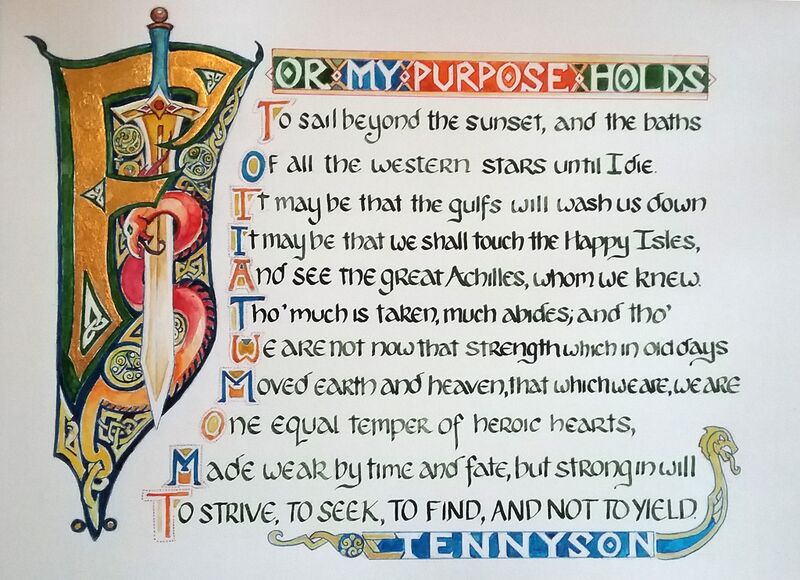 FOR MY PURPOSE HOLDS
To sail beyond the sunset, and the baths
Of all the western stars until I die.
It may be that the gulfs will wash us down
It may be that we shall touch the Happy Isles,
And see the great Achilles, whom we knew.
Tho' much is taken, much abides; and tho'
We are not now that strength which in old days
Moved earth and heaven, that which we are, we are
One equal temper of heroic hearts,
Made weak by time and fate, but strong in will
TO STRIVE, TO SEEK, TO FIND, AND NOT TO YIELD.
TENNYSON